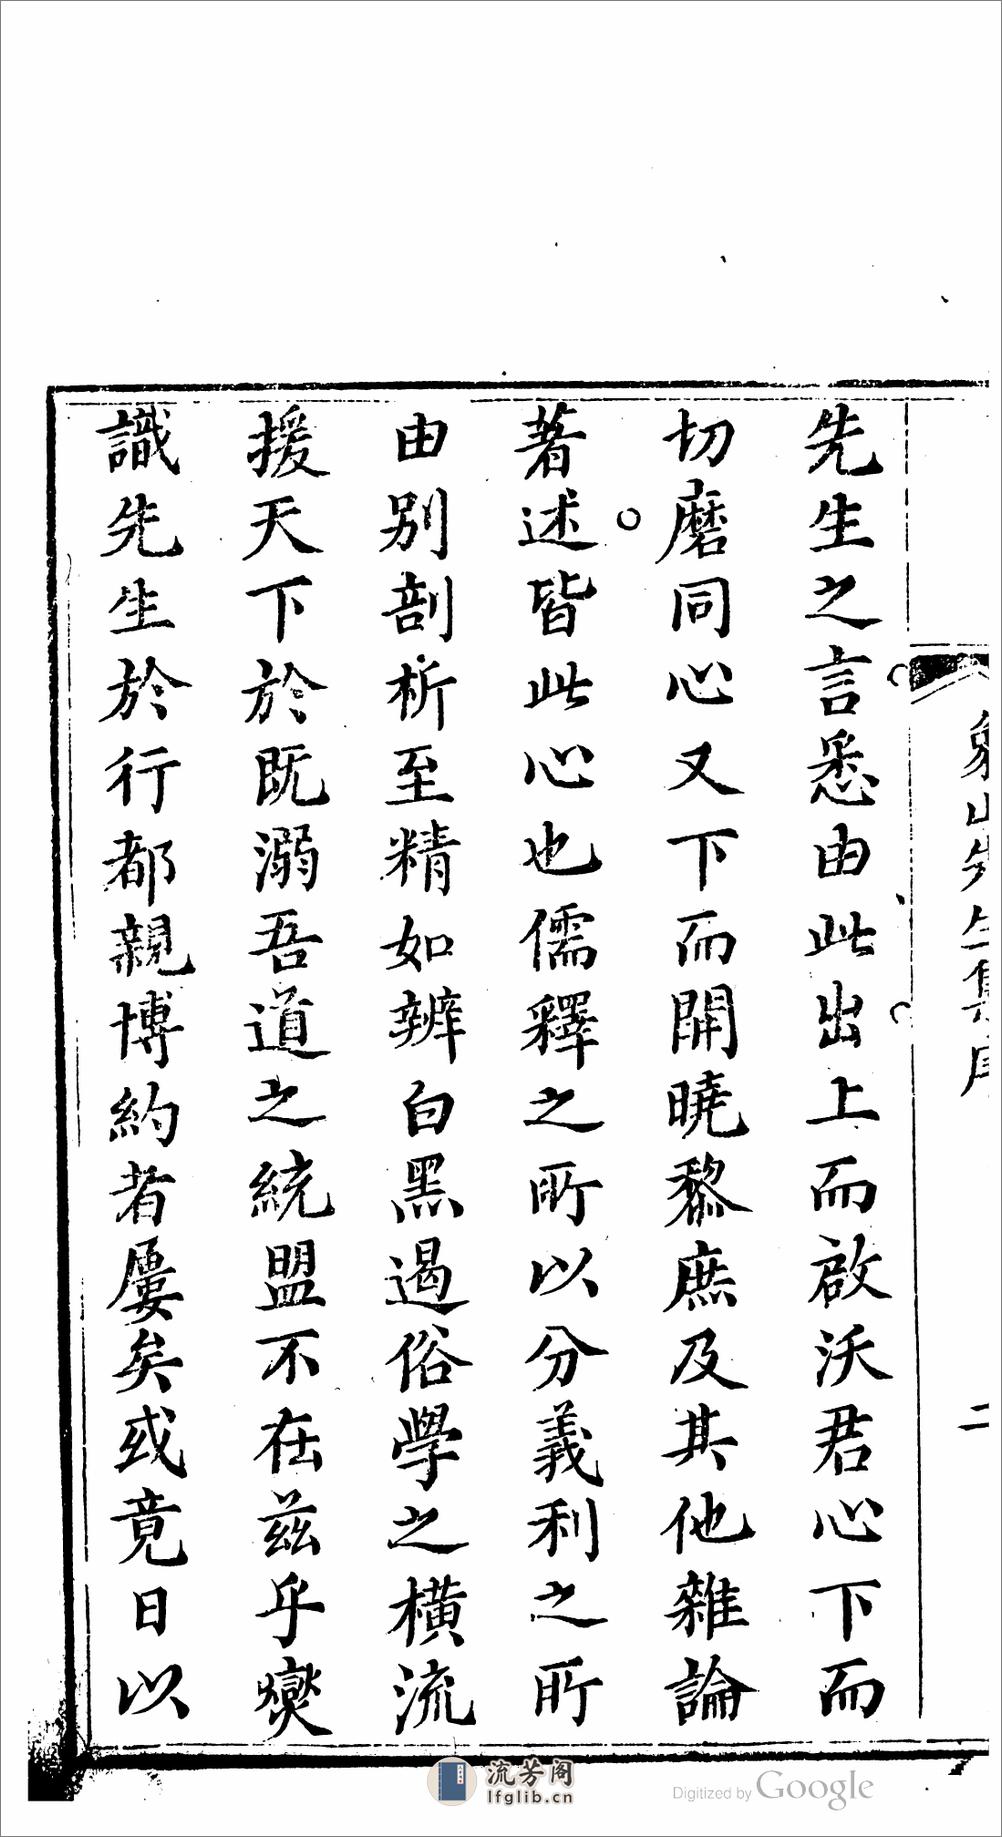 象山先生集序
二
先生之言悉由此出上而啟沃君心下而
切磨同心又下而開曉黎庶及其他雜論
著述皆此心也儒釋之所以分義利之所
由別剖析至精如辨白黑遏俗學之橫流
援天下於既溺吾道之統盟不在茲乎燮
識先生於行都親博約者屢矣或竟日以
流芳阁
lfglib.cn
Digitized by Google